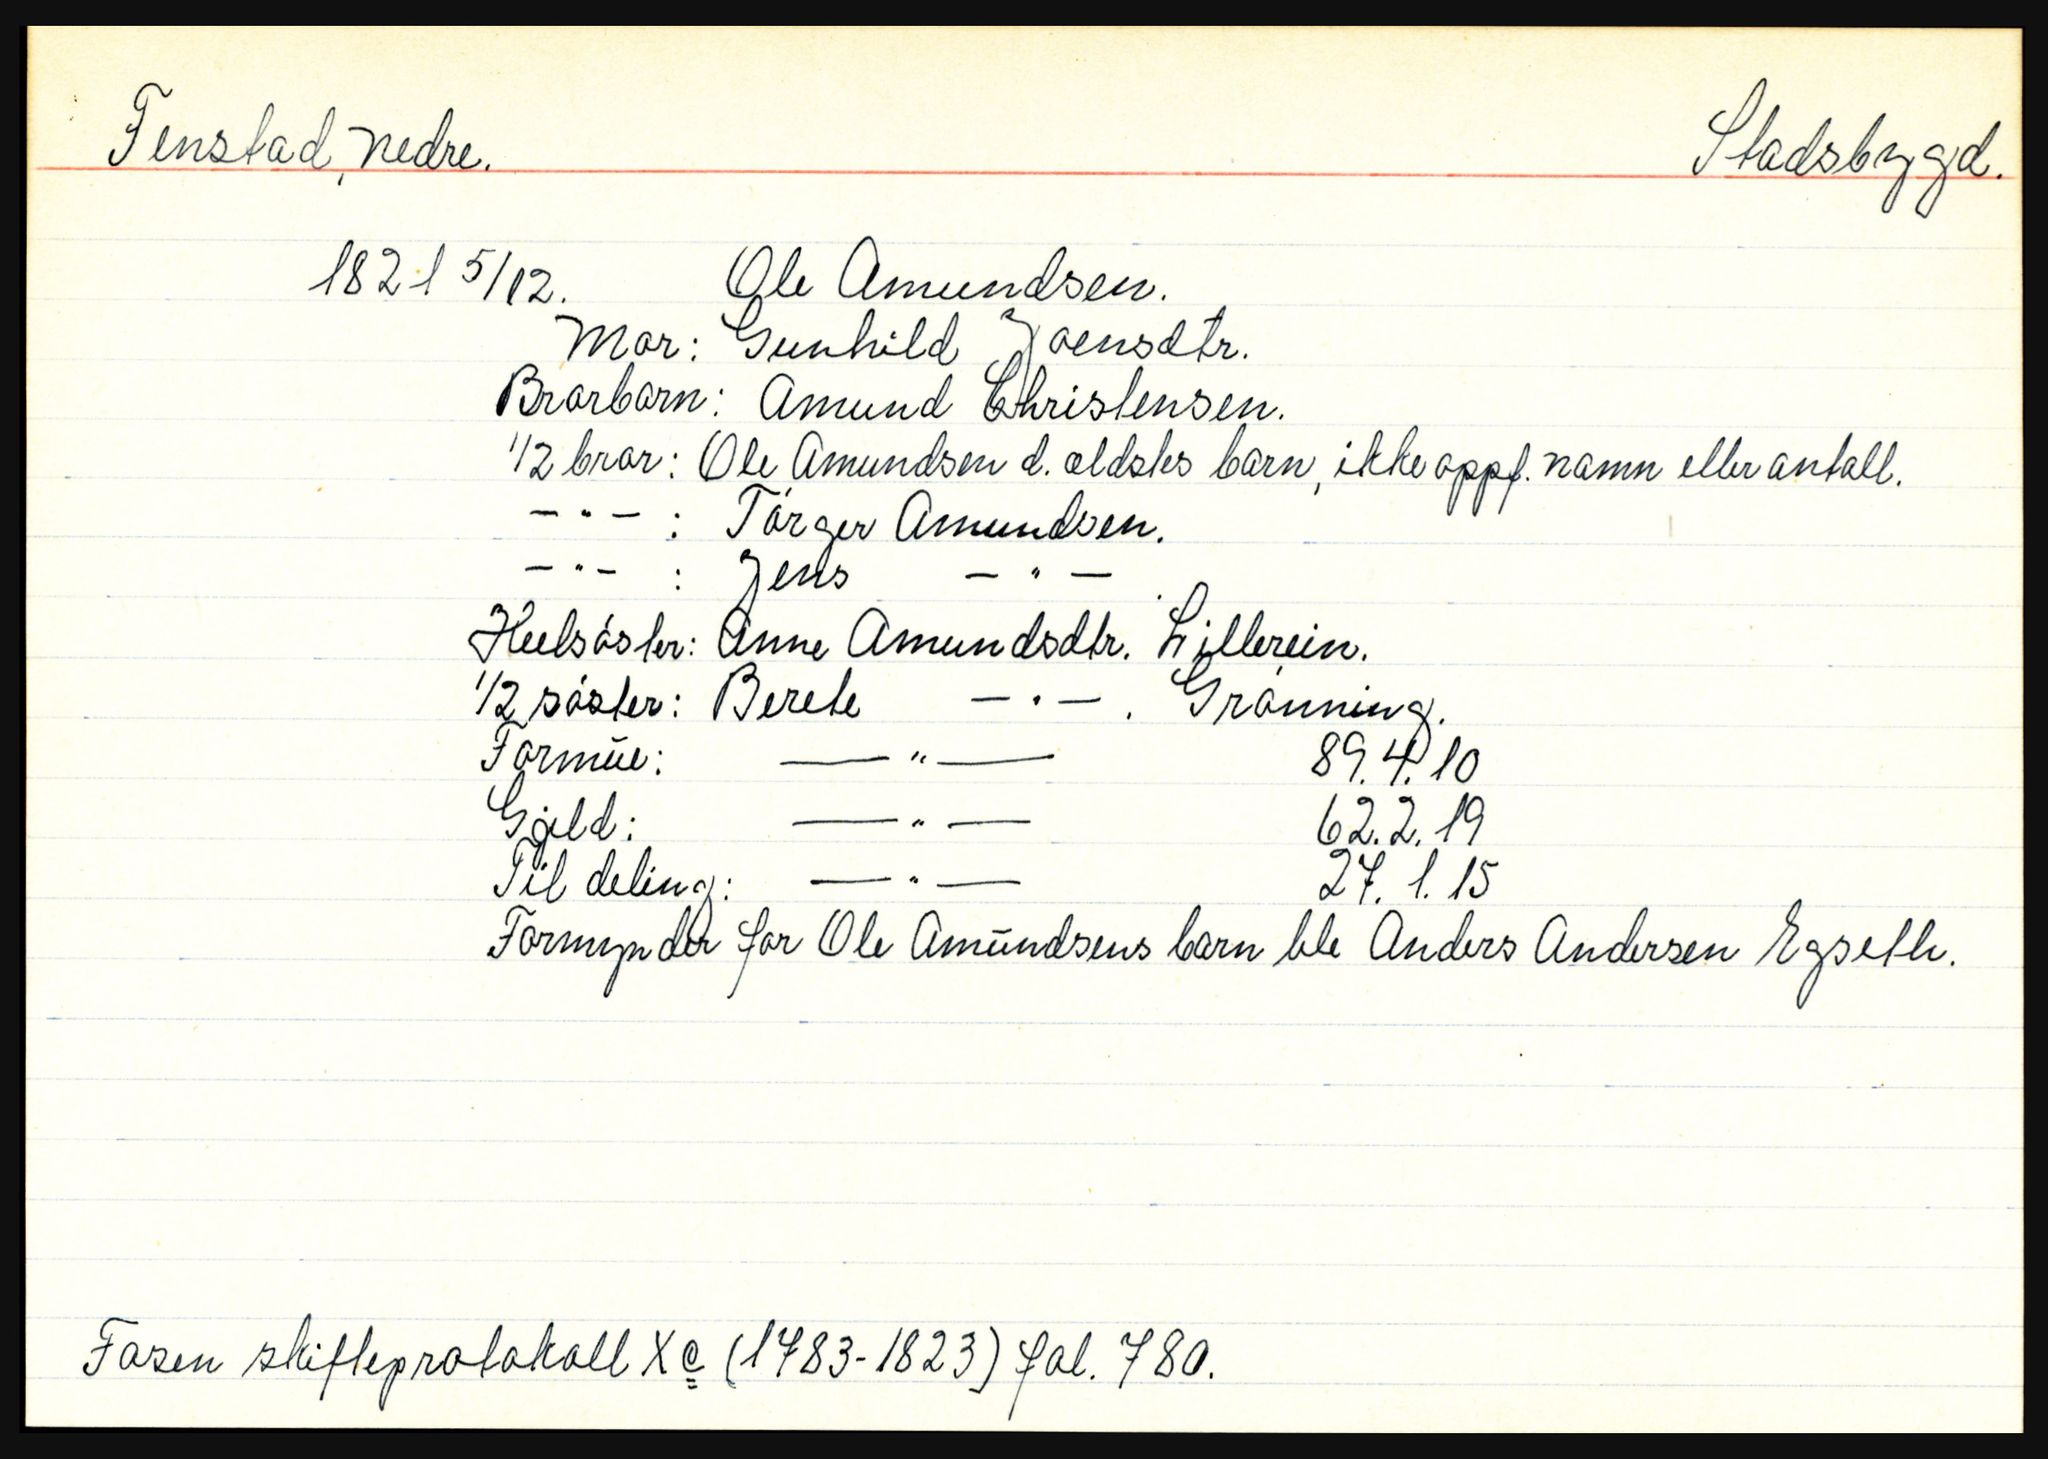 Fenstad, nedre. Stadsbygd.
1821 5/12. Ole Amundsen.
Mor: Gunhild Joensdtr.
Brorbarn: Amund Christensen.
1/2 bror: Ole Amundsen d. ældstes barn, ikke oppf. namn eller antall.
— " — : Törger Amundsen.
— " — : Jens — " — .
Heelsöster: Anne Amundsdtr. Lillerein.
1/2 söster: Berete — " — . Grönning.
Formūe: — " — 89. 4. 10
Gjeld: — " — 62. 2. 19
Til deling: — " — 27. 1. 15
Formynder for Ole Amūndsens barn ble Anders Andersen Egseth.
Fosen skifteprotokoll Xc (1783-1823) fol. 780.